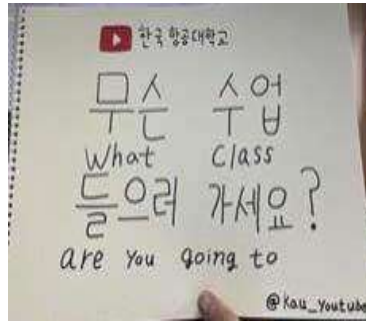 한국항공대학교
무슨 수업
What Class
들으러 가세요?
are you going to
@kau_youtube